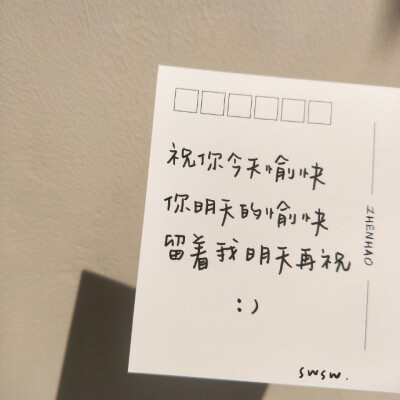 祝你今天愉快
你明天的愉快
留着我明天再祝
:)
ZHENHAO
swsw.